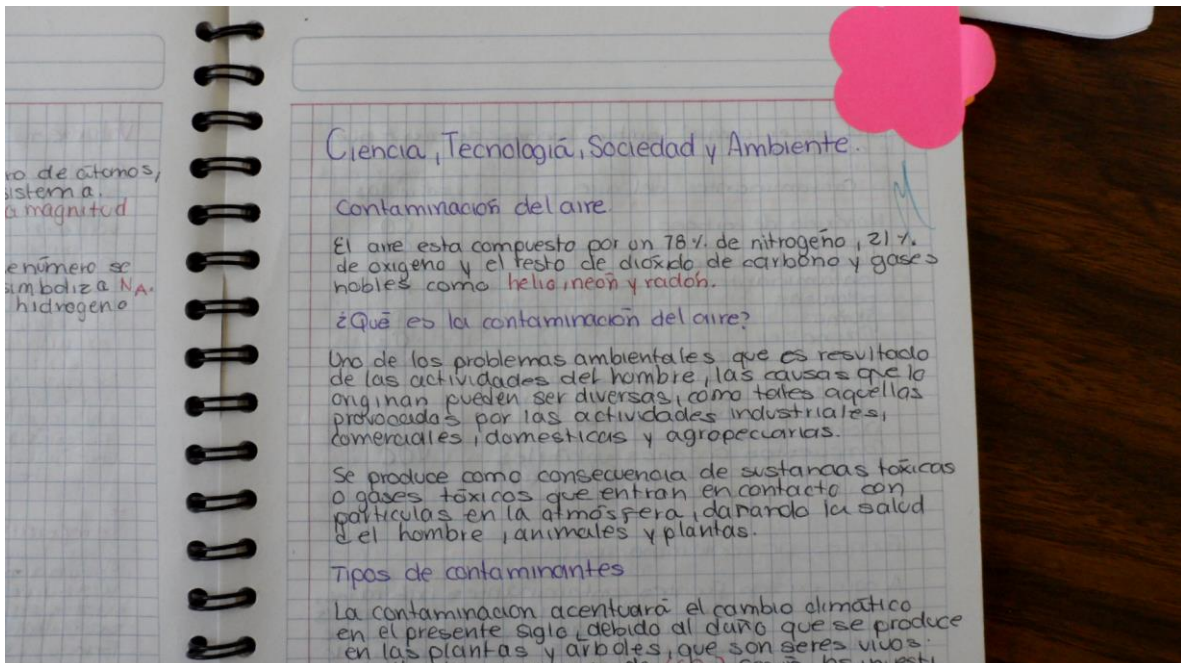 ro de átomos,
sistema.
a magnitud
e número se
simboliza NA.
hidrogeno
Ciencia, Tecnología, Sociedad y Ambiente.
Contaminación del aire
El aire esta compuesto por un 78% de nitrogeno, 21%
de oxigeno y el resto de dióxido de carbono y gases
nobles como helio, neón y radón.
¿Qué es la contaminación del aire?
Uno de los problemas ambientales que es resultado
de las actividades del hombre, las causas que lo
originan pueden ser diversas, como tales aquellas
provocadas por las actividades industriales,
comerciales, domesticas y agropecuarias.
Se produce como consecuencia de sustancias tóxicas
o gases tóxicos que entran en contacto con
partículas en la atmósfera, dañando la salud
del hombre, animales y plantas.
Tipos de contaminantes
La contaminacion acentuará el cambio climático
en el presente siglo, debido al daño que se produce
en las plantas y árboles, que son seres vivos.